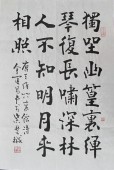 獨坐幽篁裏彈
琴復長嘯深林
人不知明月来
相照
唐王維